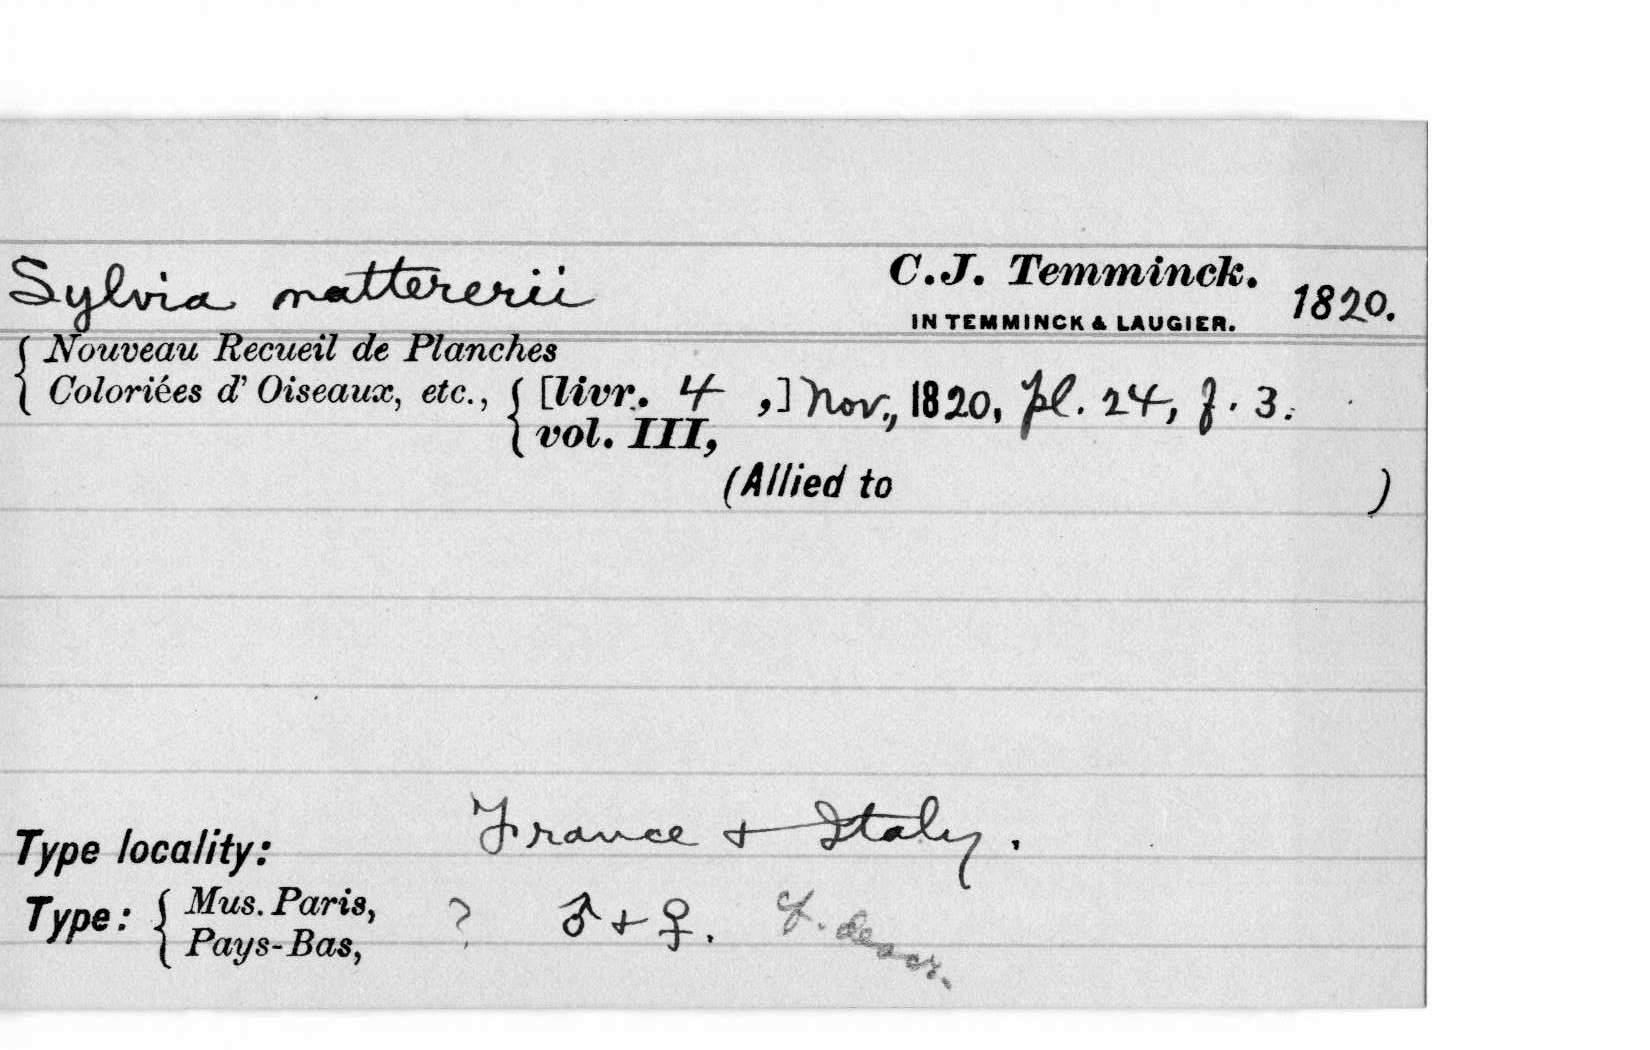 Sylvia nattererii C.J. Temminck. 1820.
IN TEMMINCK & LAUGIER.
{ Nouveau Recueil de Planches
Coloriées d' Oiseaux, etc., { [livr. 4 ,] Nov., 1820, pl. 24, f. 3.
vol. III,
(Allied to )
Type locality: France + Italy.
Type: { Mus. Paris, ? ♂ + ♀. cf. descr.
Pays-Bas,